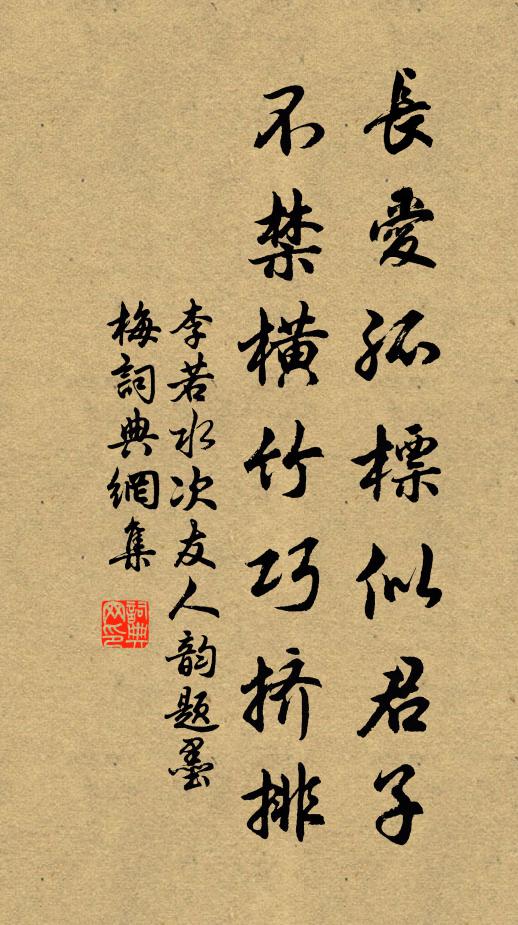 長愛孤標似君子
不禁橫竹巧挤排
李若水次友人韵题墨
梅詞典網集
詞典网印